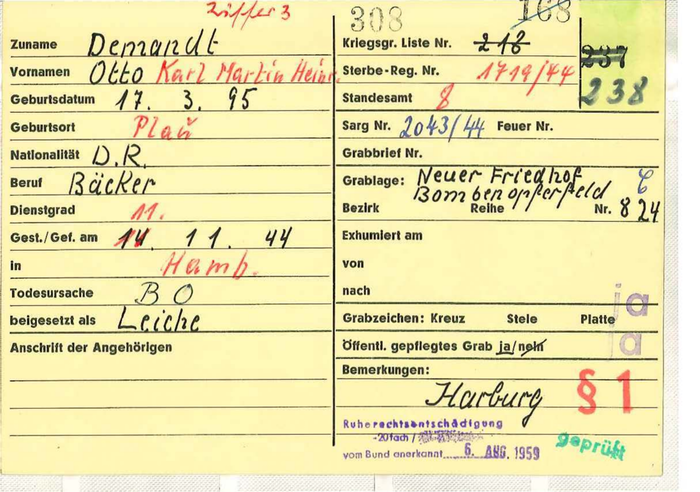 Ziffer 3
308 168
Zuname Demandt
Vornamen Otto Karl Martin Heinr.
Geburtsdatum 17. 3. 95
Geburtsort Plau
Nationalität D.R.
Beruf Bäcker
Dienstgrad 11.
Gest./Gef. am 14 11. 44
in Hamb.
Todesursache BO
beigesetzt als Leiche
Anschrift der Angehörigen
Kriegsgr. Liste Nr. 218 237
Sterbe-Reg. Nr. 1719/44 238
Standesamt 8
Sarg Nr. 2043/44 Feuer Nr.
Grabbrief Nr.
Grablage: Neuer Friedhof
Bombenopferfeld
Bezirk Reihe Nr. 824
Exhumiert am
von
nach
ja
Grabzeichen: Kreuz Stele Platte
ja
Öffentl. gepflegtes Grab ja/nein
Bemerkungen:
Harburg § 1
Ruherechtsentschädigung
-20fach /
vom Bund anerkannt 6. AUG. 1959
geprüft